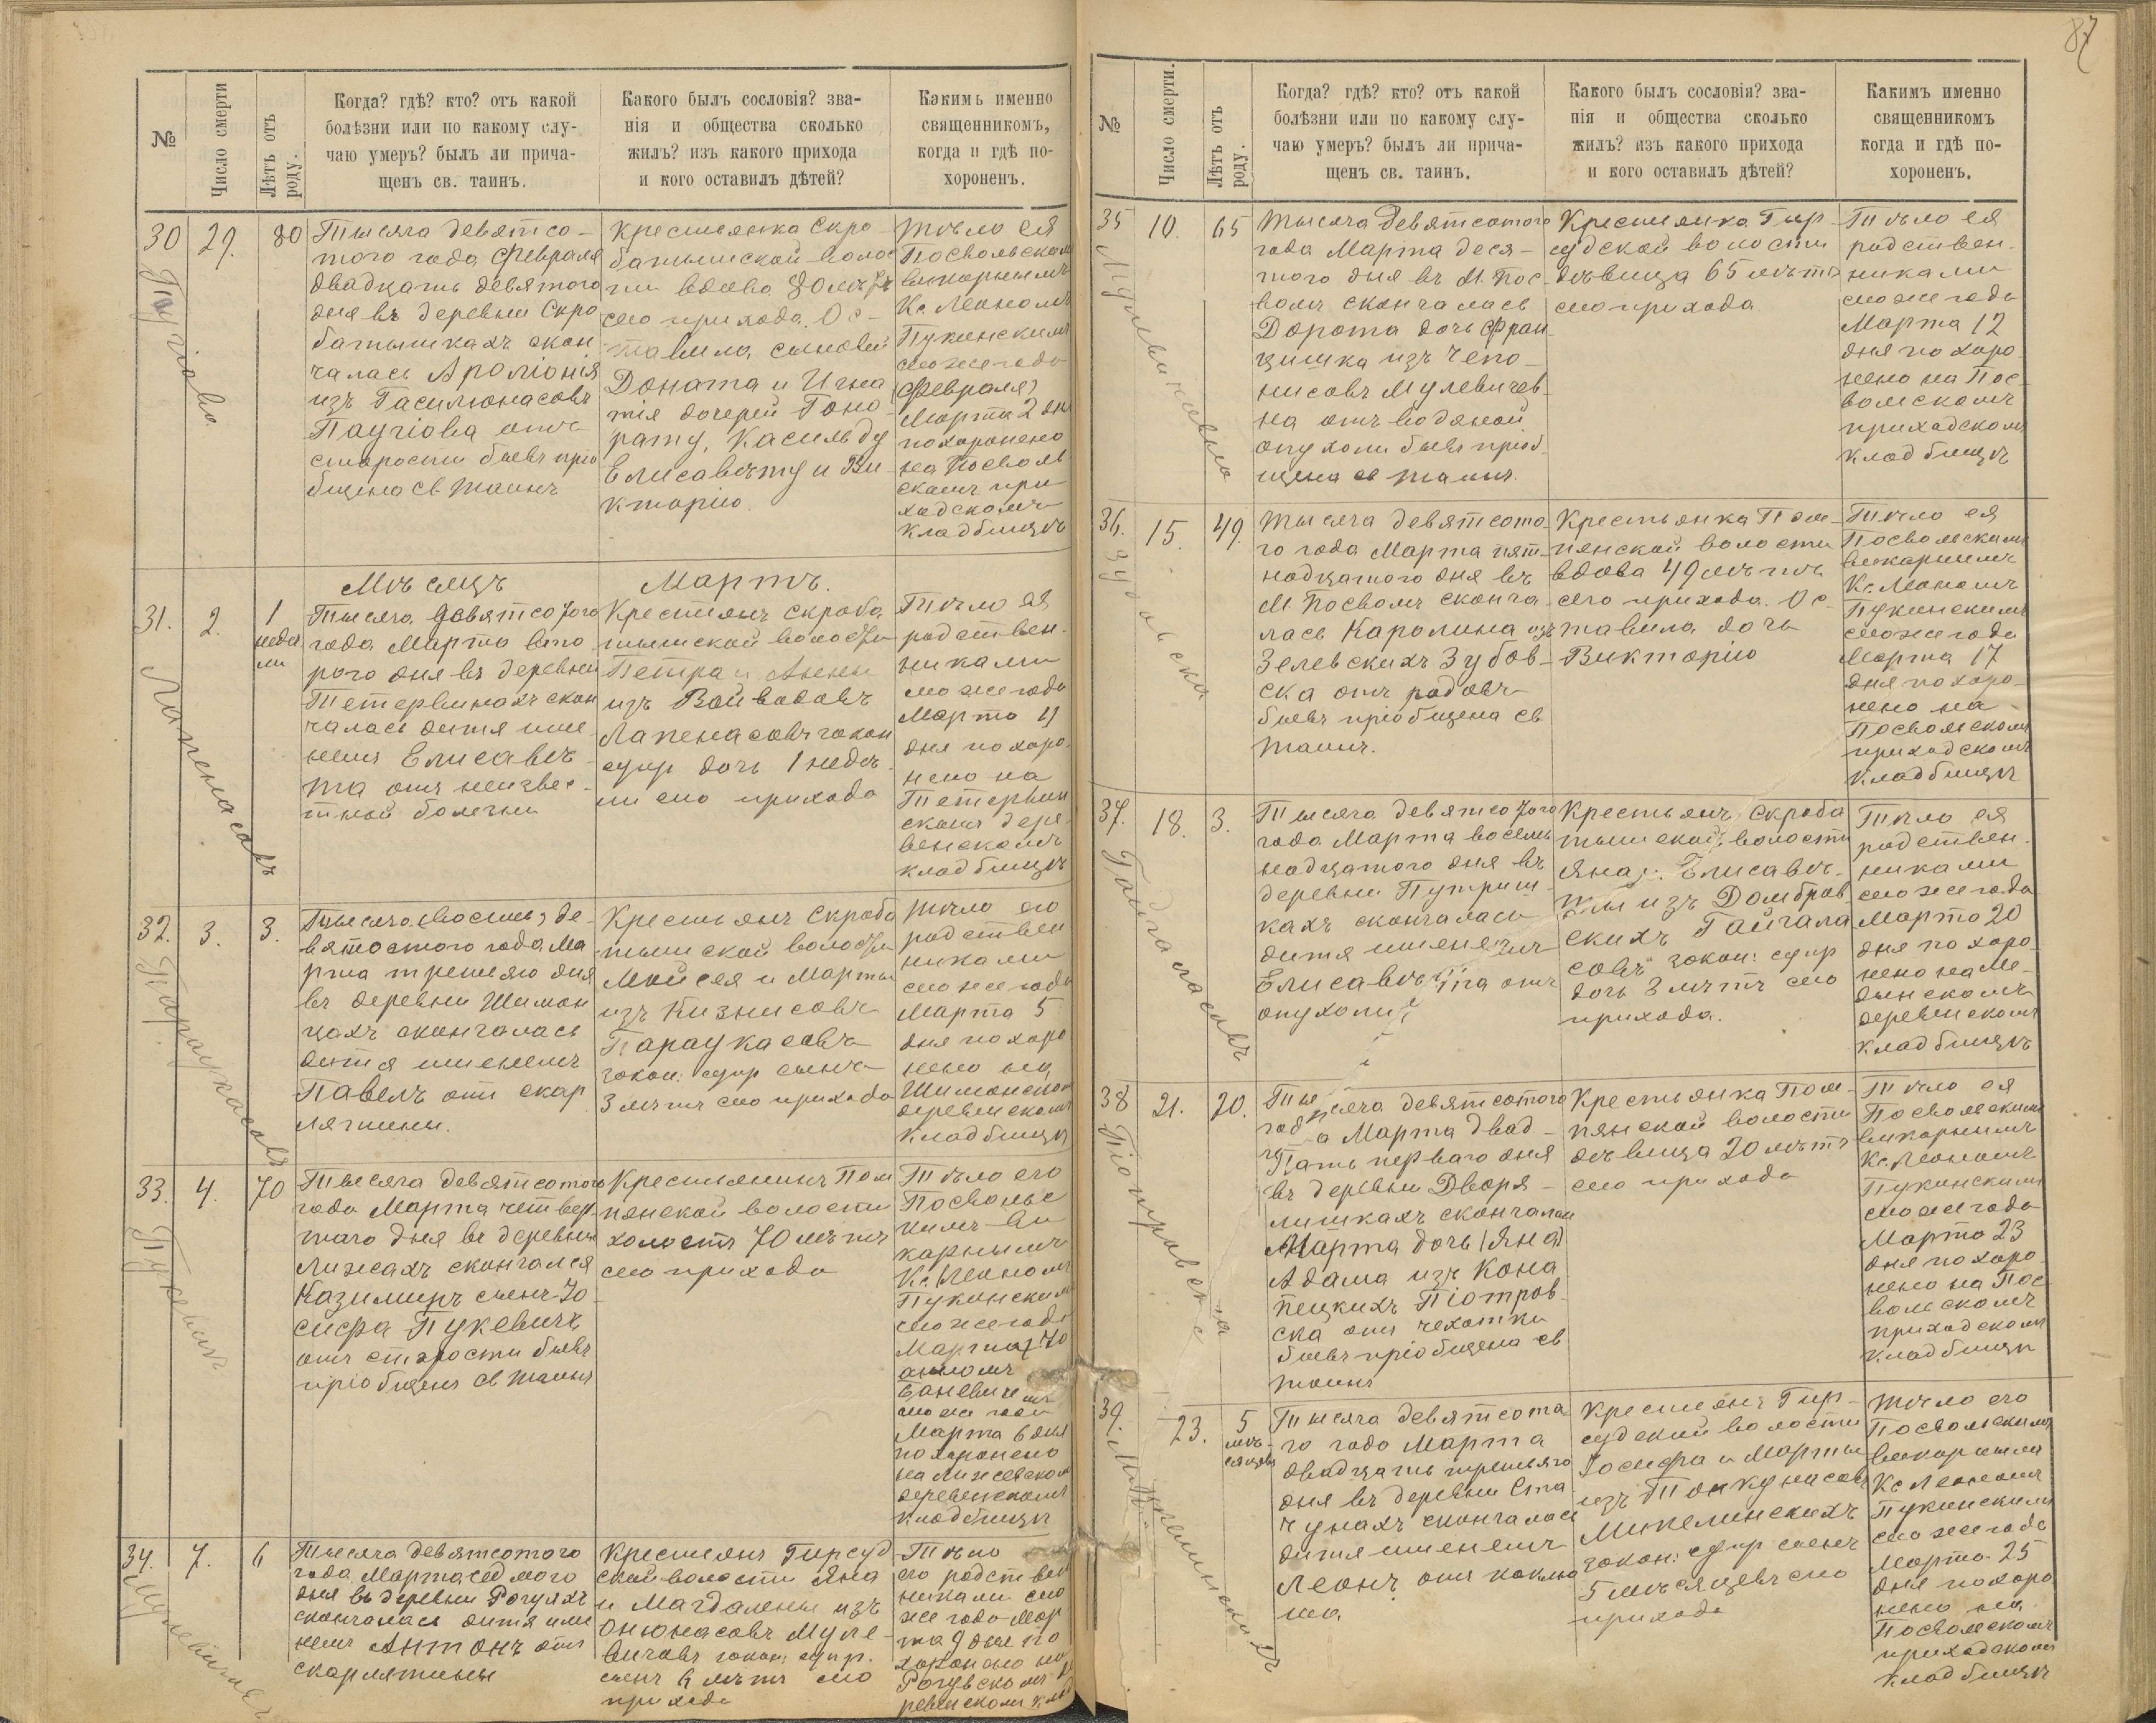 87
№
Число смерти
Лѣтъ отъ роду.
Когда? гдѣ? кто? отъ какой
болѣзни или по какому слу-
чаю умеръ? былъ ли прича-
щенъ св. таинъ.
Какого былъ сословія? зва-
нія и общества сколько
жилъ? изъ какого прихода
и кого оставилъ дѣтей?
Какимъ именно
священникомъ,
когда и гдѣ по-
хороненъ.
30
29.
80
Тысяча девятсо-
того года Февраля
двадцать девятого
дня въ деревни Скро
батышкахъ скон
чалась Аполіонія
изъ Гасилюнасовъ
отъ
старости бывъ пріо
бщена св таинъ
Крестьянка Скро
батышской волос
ти вдова 80 лѣтъ
сего прихода. Ос-
тавила сыновей
Доната и Игна
тія дочерей Гоно
рату, Касильду
Елисавѣту и Ви-
кторію.
Тѣло ея
Посвольским
викарнымъ
Кс. Леономъ
Пуконскимъ
сего же года
(Февраля)
Марта 2 дня
похоронено
на Посволь
скомъ при
ходскомъ
кладбищѣ
Мѣсяцъ Мартъ.
31.
2.
1
неде
ли
Лапенасовъ
Тысяча девятсотого
года Марта вто
рого дня въ деревни
Тетервинахъ скон
чалась дитя име
немъ Елисавѣ
та отъ неизвес-
тной болезни
Крестьянъ Скроба
тышской волости
Петра и Анны
изъ Войвадовъ
Лапенасовъ закон
супр дочь 1 недѣ-
ли сего прихода
Тѣло ея
родствен
никами
сего же года
Марта 4
дня похоро
нено на
Тетервин
скомъ дере
венскомъ
кладбищѣ
32.
3.
3.
Параукасовъ
Тысяча (восемь) де-
вятостого года Ма
рта третьяго дня
въ деревни Шимон
цахъ скончалась
дитя именемъ
Павелъ отъ скар
лятины.
Крестьянъ Скроба
тышской волости
Мойсея и Марты
изъ Кизнисовъ
Параукасовъ
закон: супр сынъ
3 лѣтъ сего прихода
Тѣло его
родствен
никами
сего же года
Марта 5
дня похоро
нено на
Шимонском
деревенскомъ
кладбищѣ
33.
4.
70
Пукевичъ
Тысяча девятсотого
года Марта четвер
таго дня въ деревни
Лижахъ скончался
Казимиръ сынъ Іо
сифа Пукевичъ
отъ старости бывъ
пріобщенъ св таинъ
Крестьянинъ Пом
пянской волости
холостъ 70 лѣтъ
сего прихода
Тѣло его
Посвольс
кимъ ви
карнымъ
Кс. Леономъ
Пуконскимъ
сего же года
Марта
сего же года
Марта 6 дня
похоронено
на Лижевском
деревенскомъ
кладбищѣ
34.
7.
6
Мулевичевъ
Тысяча девятсотого
года Марта седмого
дня въ деревни Рогуяхъ
скончалась дитя име
немъ Антонъ отъ
скарлятины
Крестьянъ Гирсуд
ской волости Яна
и Магдалены изъ
Онюнасовъ Муле
вичовъ закон: супр.
сынъ 6 лѣтъ сего
прихода
Тѣло
его родствен
никами сего
же года Мар
та 9 дня по
хоронено на
Рогувскомъ де
ревенскомъ клад
№
Число смерти.
Лѣтъ отъ роду.
Когда? гдѣ? кто? отъ какой
болѣзни или по какому слу-
чаю умеръ? былъ ли прича-
щенъ св. таинъ.
Какого былъ сословія? зва-
нія и общества сколько
жилъ? изъ какого прихода
и кого оставилъ дѣтей?
Какимъ именно
священникомъ
когда и гдѣ по-
хороненъ.
35
10.
65
Мулевичевна
Тысяча девятсотого
года Марта деся-
того дня въ М. Пос-
волѣ скончалась
Дорота дочь Фран
цишка изъ Чепо-
нисовъ Мулевичев-
на отъ водяной
опухоли бывъ пріоб-
щена св таинъ.
Крестьянка Гир-
судской волости
дѣвица 65 лѣтъ
сего прихода
Тѣло ея
родствен-
никами
сего же года
Марта 12
дня похоро
нено на Пос
вольскомъ
приходскомъ
кладбищѣ
36.
15.
49.
Зубовска
Тысяча девятсото
го года Марта пят-
надцатого дня въ
М. Посволѣ сконча
лась Каролина изъ
Зелевскихъ Зубов-
ска отъ родовъ
бывъ пріобщена св
таинъ.
Крестьянка Пом-
пянской волости
вдова 49 лѣтъ
сего прихода. Ос-
тавила дочь
Викторію
Тѣло ея
Посвольскимъ
викарнымъ
Кс. Леономъ
Пуконскимъ
сего же года
Марта 17
дня похоро-
нено на
Посвольскомъ
приходскомъ
кладбищѣ
37.
18.
3.
Гайгаласовъ
Тысяча девятсотого
года Марта восемь
надцатого дня въ
деревни Путриш-
кахъ скончалась
дитя именемъ
Елисавѣта отъ
опухоли
Крестьянъ Скроба
тышской волости
Яна и Елисавѣ-
ты изъ Домбров
скихъ Гайгала
совъ закон: супр
дочь 3 лѣтъ сего
прихода.
Тѣло ея
родствен
никами
сего же года
Марта 20
дня похоро
нено на Ме-
дынскомъ
деревенскомъ
кладбищѣ
38
21.
20.
Піотровска
Тысяча девятсотого
года Марта двад-
цать перваго дня
въ деревни Дворя-
лишкахъ скончалась
Марта дочь (Яна)
Адама изъ Кона
пецкихъ Піотров-
ска отъ чехотки
бывъ пріобщена св
таинъ
Крестьянка Пом-
пянской волости
дѣвица 20 лѣтъ
сего прихода
Тѣло ея
Посвольскимъ
викарнымъ
Кс. Леономъ
Пуконскимъ
сего же года
Марта 23
дня похоро
нено на Пос
вольскомъ
приходскомъ
кладбищѣ
39.
23.
5
мѣ-
сяцевъ
Микелинскихъ
Тысяча девятсота
го года Марта
двадцать третьяго
дня въ деревни Ста
чунахъ скончалась
дитя именемъ
Леонъ отъ коклю
ша
Крестьянъ Гир-
судской волости
Іосифа и Марты
изъ Тонкунасовъ
Микелинскихъ
закон: супр сынъ
5 мѣсяцевъ сего
прихода
Тѣло его
Посвольскимъ
викарнымъ
Кс. Леономъ
Пуконскимъ
сего же года
Марта 25
дня похоро
нено на
Посвольскомъ
приходскомъ
кладбищѣ